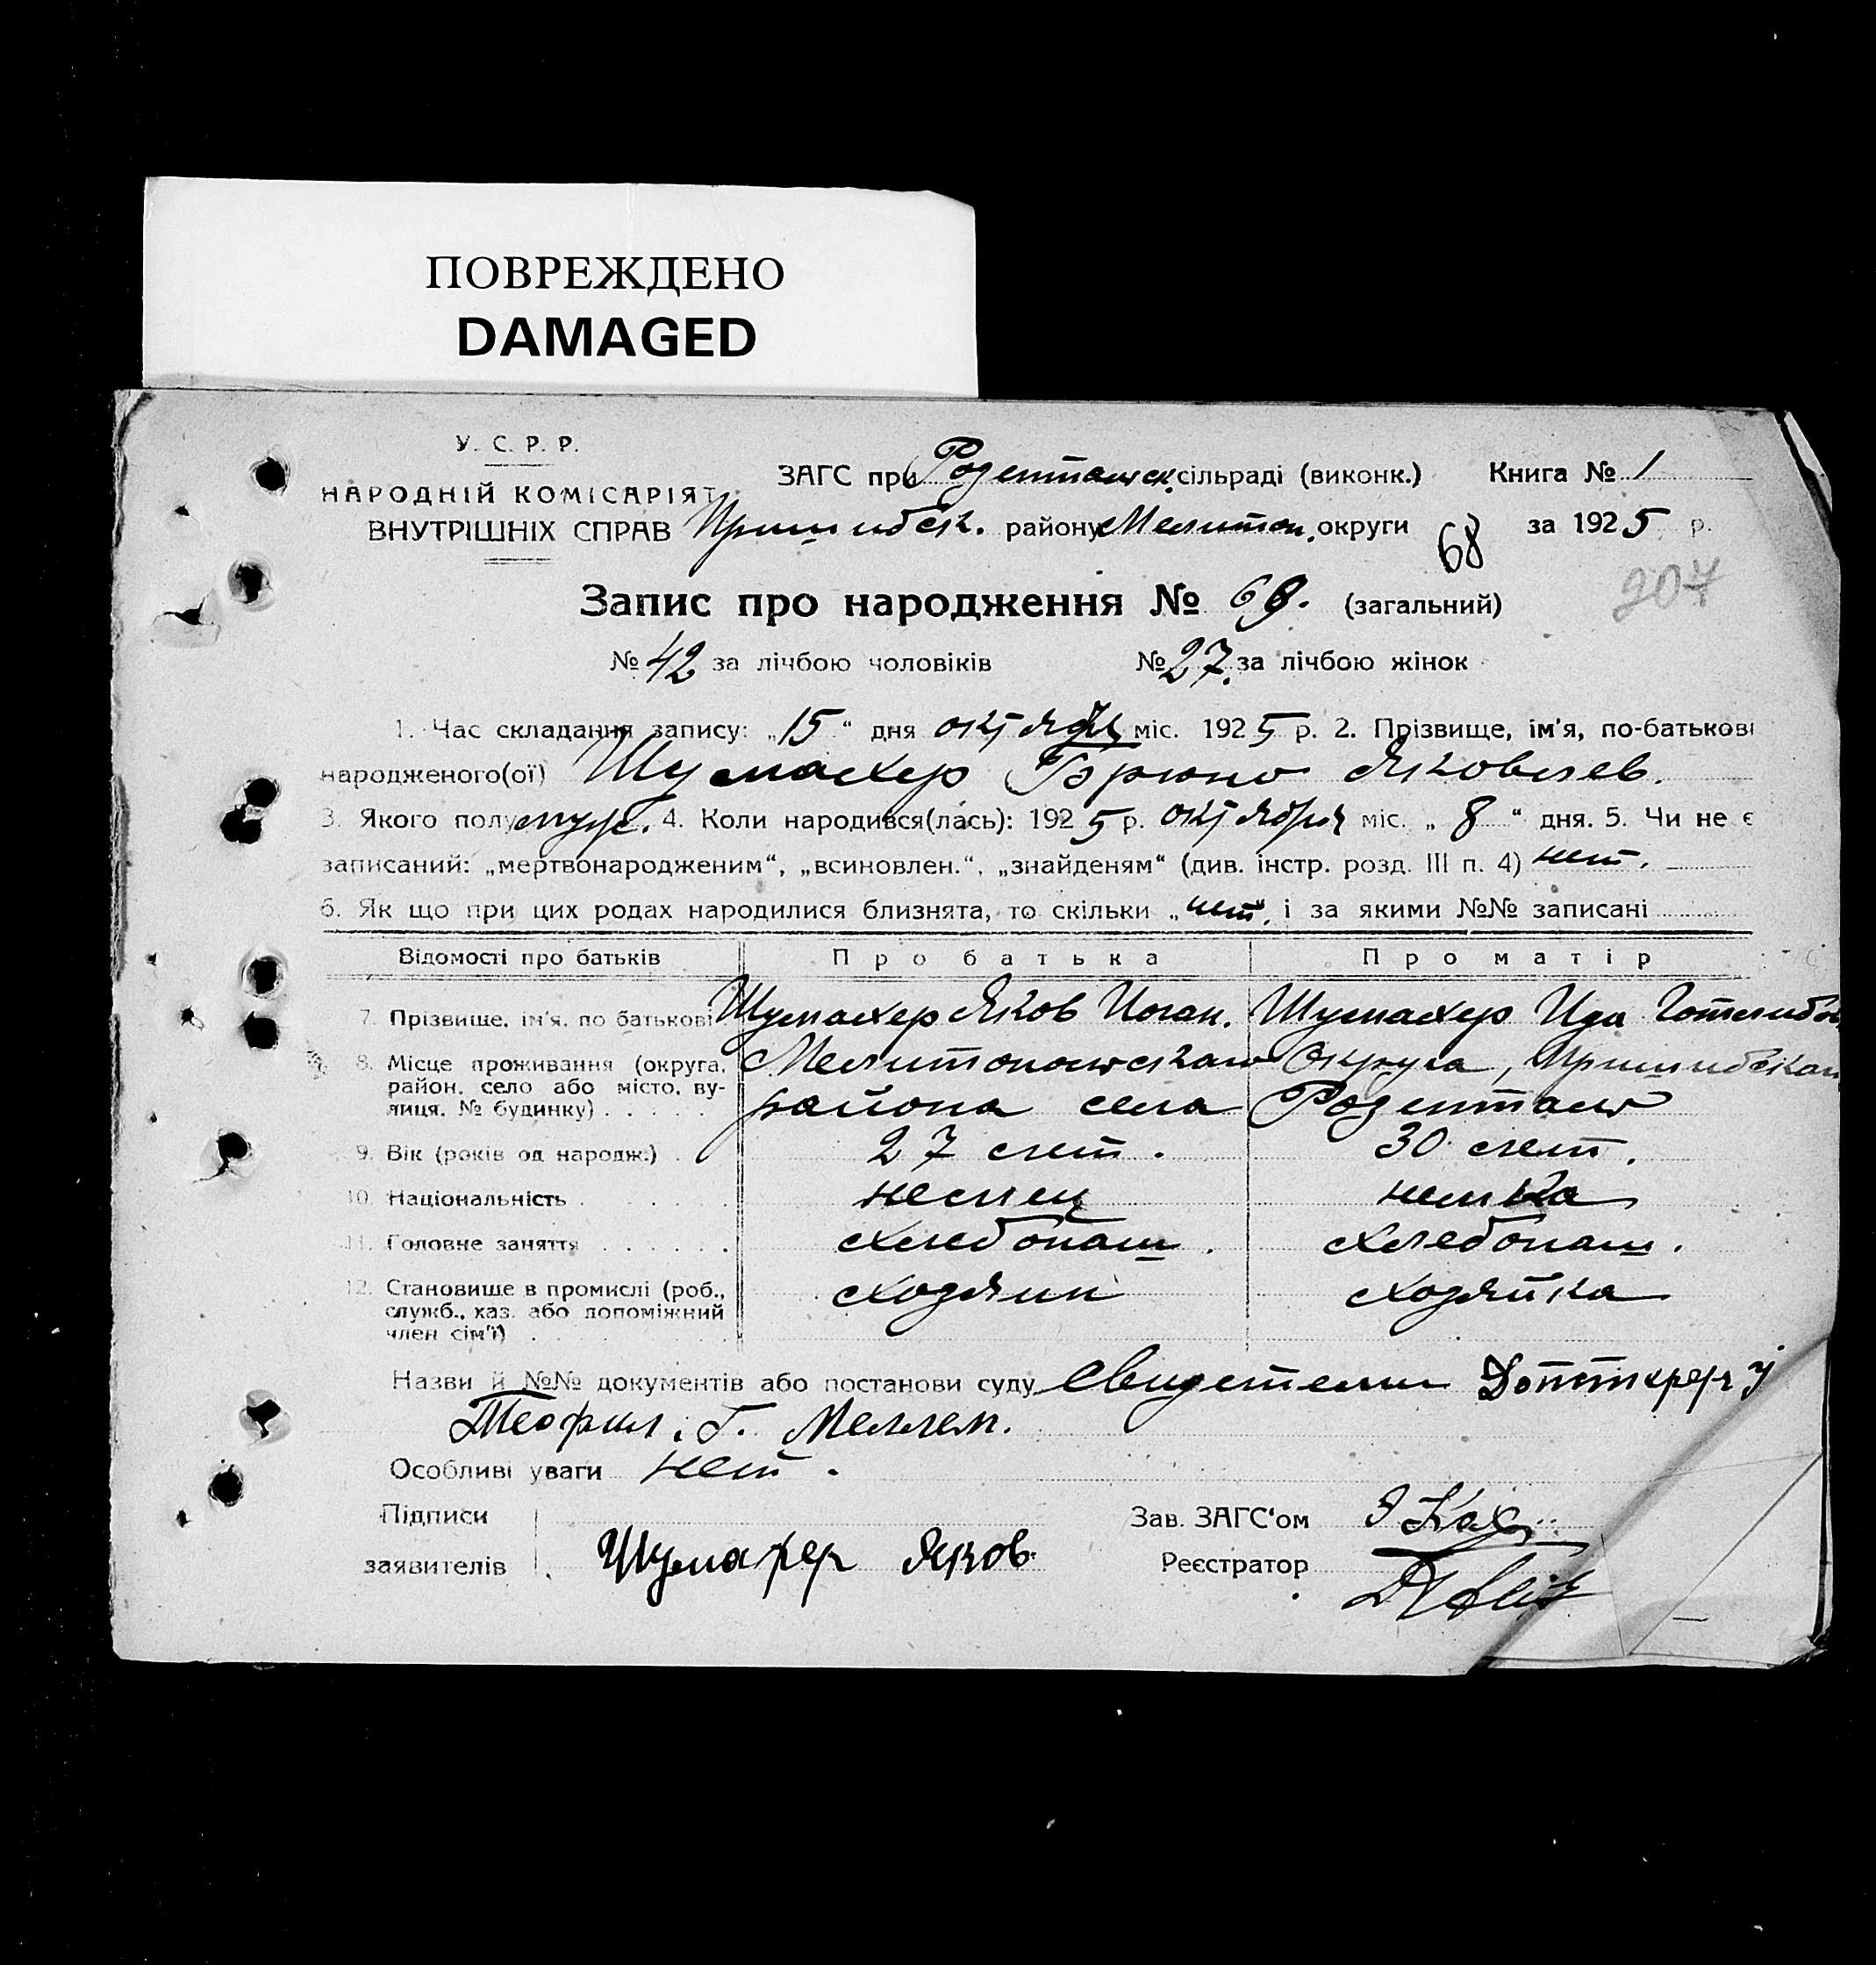 ПОВРЕЖДЕНО
DAMAGED
У. С. Р. Р.
НАРОДНІЙ КОМІСАРІЯТ
ВНУТРІШНІХ СПРАВ
ЗАГС при Розентальск. сільраді (виконк.) Книга № 1
Пришибск. району Мелитоп. округи 68 за 1925 р.
207
Запис про народження № 69. (загальний)
№ 42 за лічбою чоловіків № 27. за лічбою жінок
1. Час складання запису: „15“ дня октября міс. 1925 р. 2. Прізвище, ім'я, по-батькові
народженого(ої) Шумахер Брюно Яковлев.
3. Якого полу муж. 4. Коли народився(лась): 1925 р. октября міс. „8“ дня. 5. Чи не є
записаний: „мертвонародженим“, „всиновлен.“, „знайденям“ (див. інстр. розд. III п. 4) нет.
6. Як що при цих родах народилися близнята, то скільки „нет“, і за якими №№ записані
Відомості про батьків Про батька Про матір
7. Прізвище, ім'я, по батькові Шумахер Яков Иоган. Шумахер Ида Готлибов
8. Місце проживання (округа, район, село або місто, вулиця, № будинку) Мелитопольская Округа, Пришибская
района села Розенталь
9. Вік (років од народж.) 27 лет. 30 лет.
10. Національність немец немка
11. Головне заняття хлебопаш. хлебопаш.
12. Становище в промислі (роб., служб., хаз. або допоміжний член сім'ї) хозяин хозяйка
Назви й №№ документів або постанови суду свидетели
Теофил, Г. Меллем.
Особливі уваги нет.
Підписи
заявителів Шумахер Яков
Зав. ЗАГС'ом
Реєстратор